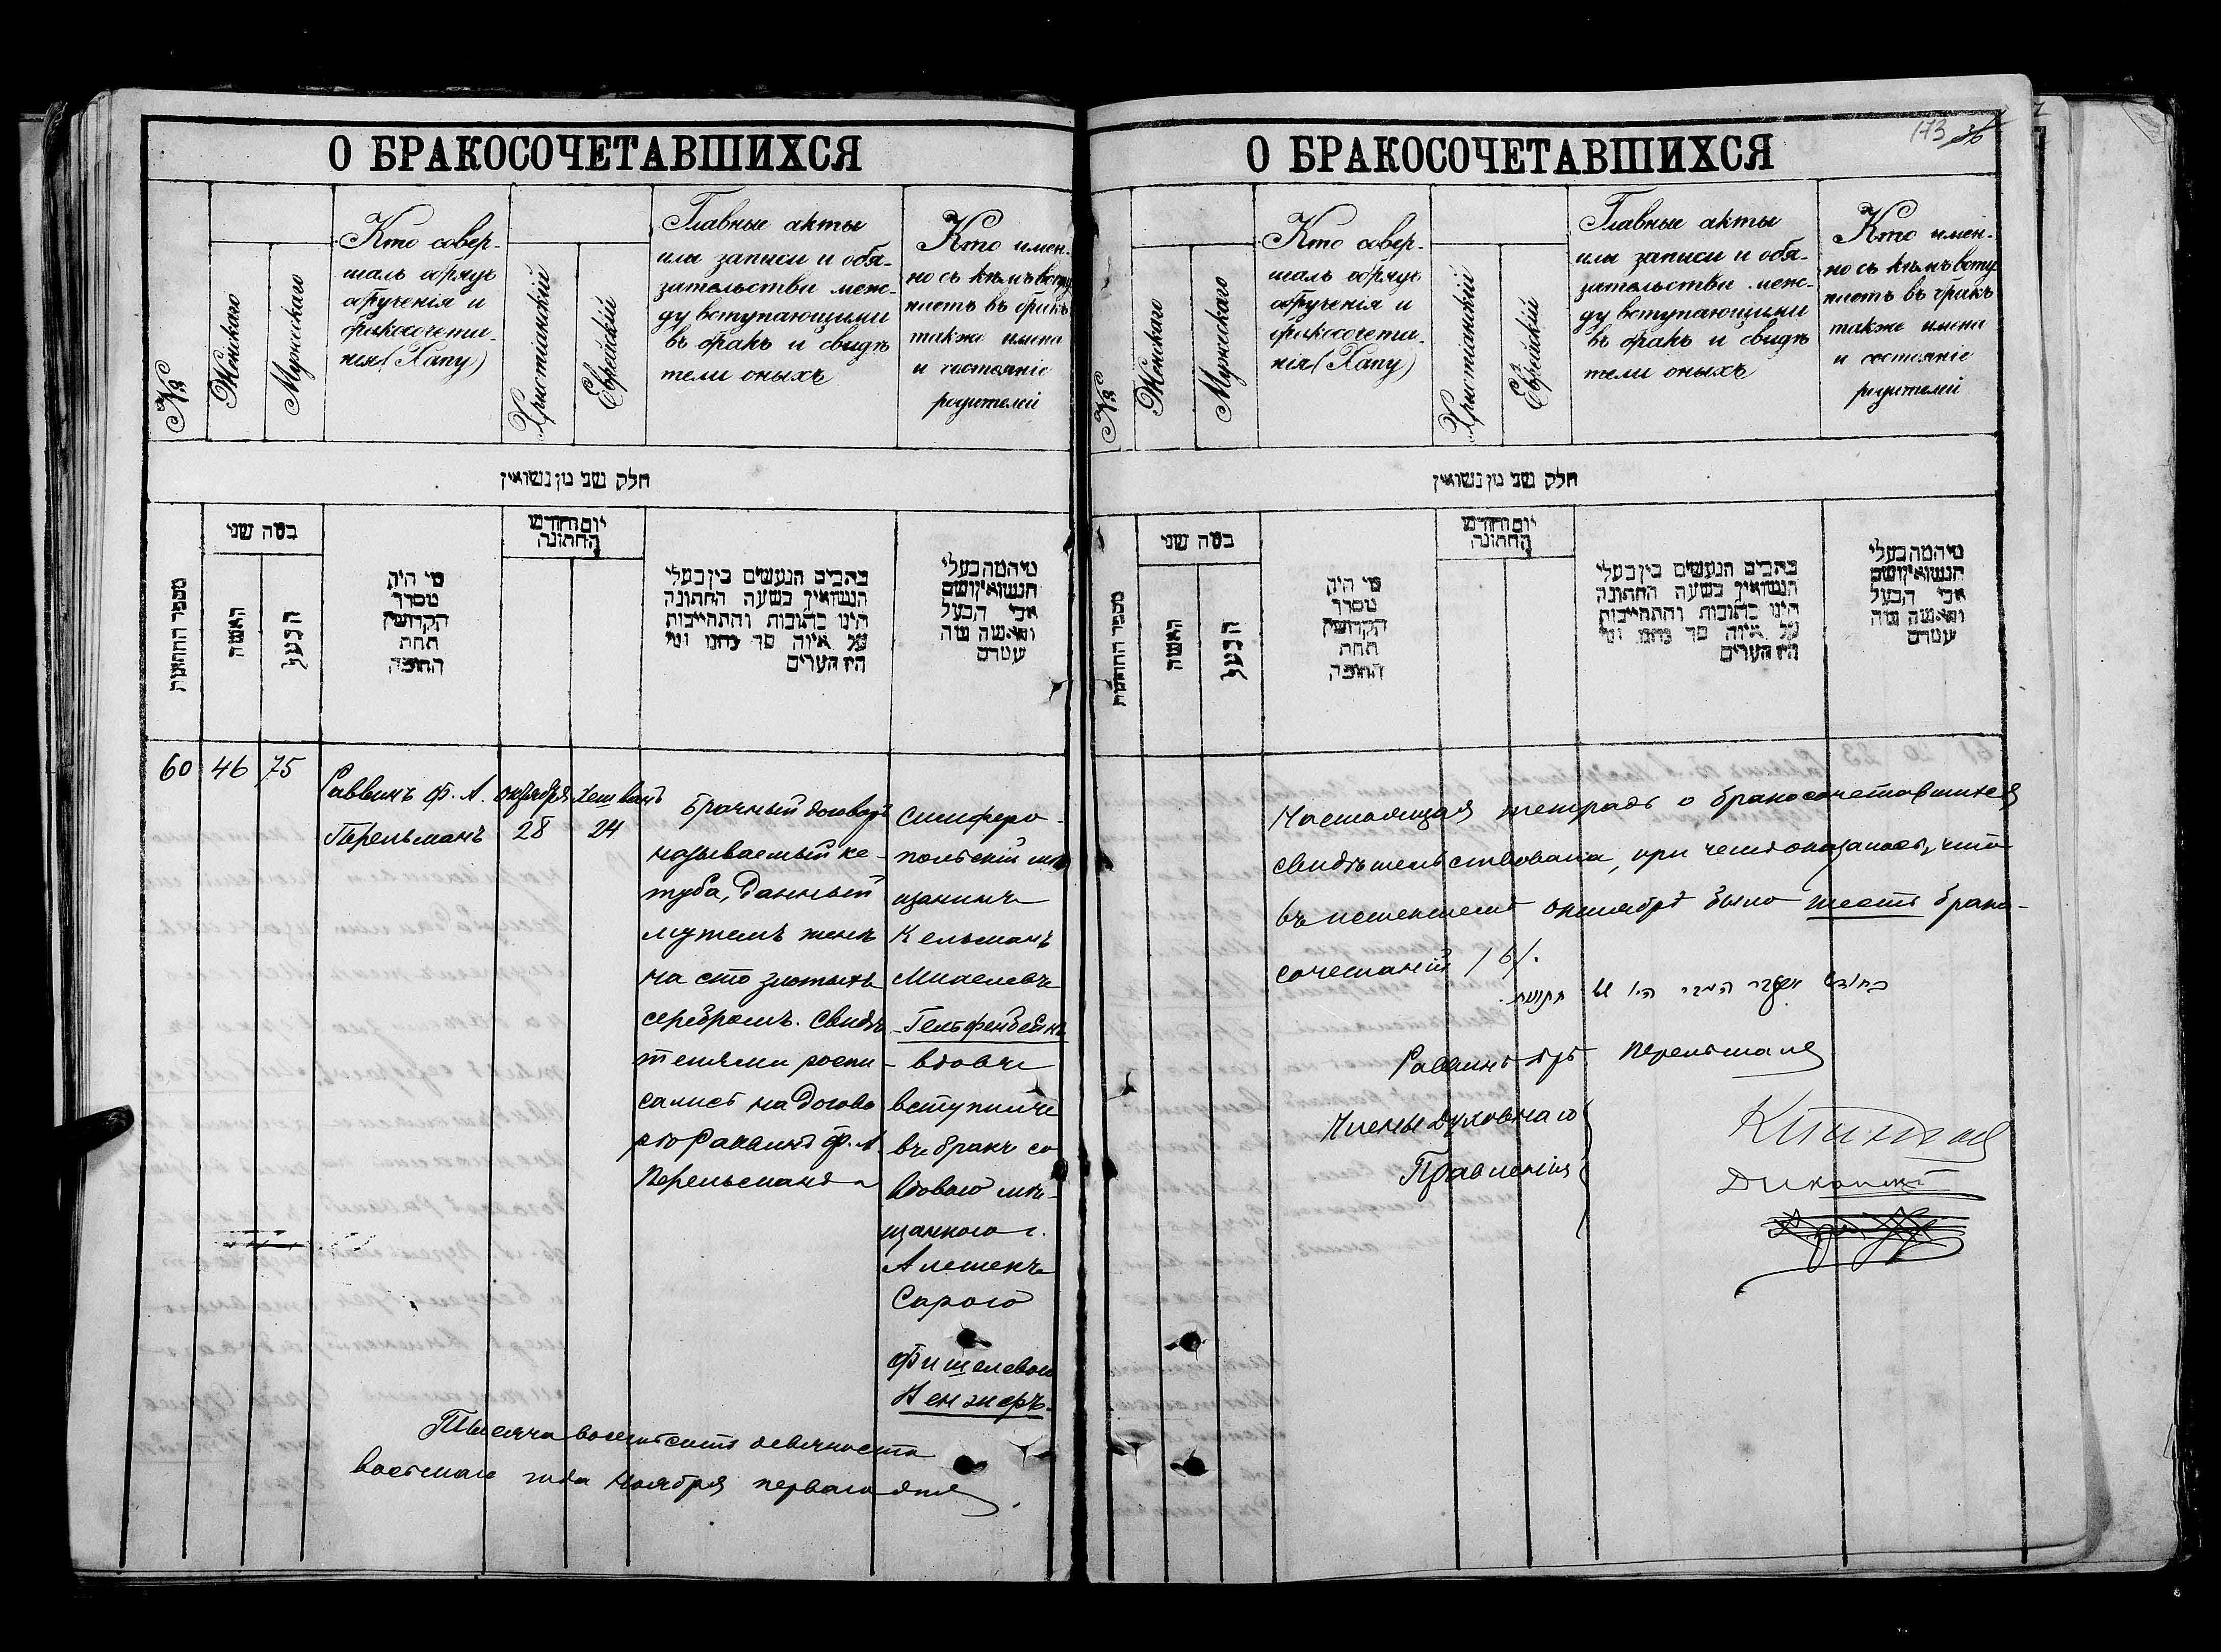 О БРАКОСОЧЕТАВШИХСЯ
№
Женскаго
Мужескаго
Кто совер-
шалъ обрядъ
обрученія и
бракосочета-
нія (Хапу)
Христіанскій
Еврейскій
Главные акты
или записи и обя-
зательства меж-
ду вступающими
въ бракъ и свидѣ
тели оныхъ
Кто имен-
но съ кѣмъ всту
паетъ въ бракъ
также имена
и состояніе
родителей
חלק שני מן נשואין
מספר החתונות
בטה שני
האשה
הבעל
מי היה
מסדר
הקדושין
תחת
החופה
יום וחודש
החתונה
בהבים הנעשים בין בעלי
הנשואין בשעה החתונה
היינו כתובות והתחייבות
על איזה סך
העדים
מיהמה בעלי
הנשואין ושם
אבי הבעל
והאשה
60 46 75
Раввинъ Ф. А.
Перельманъ
октября
28
Хешванъ
24
Брачный договоръ
называемый ке-
туба, данный
мужемъ женѣ
на сто злотыхъ
серебромъ. Свидѣ
телями роспи-
сались на догово
рѣ Раввинъ Ф. А.
Перельманъ
Симферо-
польскій мѣ
щанинъ
Кельманъ
Михелевъ
Гельфенбейнъ
вдовъ
вступилъ
въ бракъ со
вдовою мѣ-
щанкою г.
Алешекъ
Сарою
Фишелевою
Тысяча восемьсотъ девяносто
восьмаго года Ноября перваго дня
О БРАКОСОЧЕТАВШИХСЯ
173
№
Женскаго
Мужескаго
Кто совер-
шалъ обрядъ
обрученія и
бракосочета-
нія (Хапу)
Христіанскій
Еврейскій
Главные акты
или записи и обя-
зательства меж-
ду вступающими
въ бракъ и свидѣ
тели оныхъ
Кто имен-
но съ кѣмъ всту
паетъ въ бракъ
также имена
и состояніе
родителей
חלק שני מן נשואין
מספר החתונות
בטה שני
האשה
הבעל
מי היה
מסדר
הקדושין
תחת
החופה
יום וחודש
החתונה
בהבים הנעשים בין בעלי
הנשואין בשעה החתונה
היינו כתובות והתחייבות
על איזה סך
העדים
מיהמה בעלי
הנשואין ושם
אבי הבעל
והאשה
Настоящая тетрадь о бракосочетавшихся
свидѣтельствована, при чемъ оказалось, что
въ истекшемъ октябрѣ было шесть брако-
сочетаній /6/.
Раввинъ Перельманъ
Члены Духовнаго
Правленія